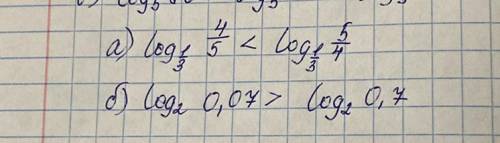 а) log_{1/3} 4/5 < log_{1/3} 5/4
б) log₂ 0,07 > log₂ 0,7